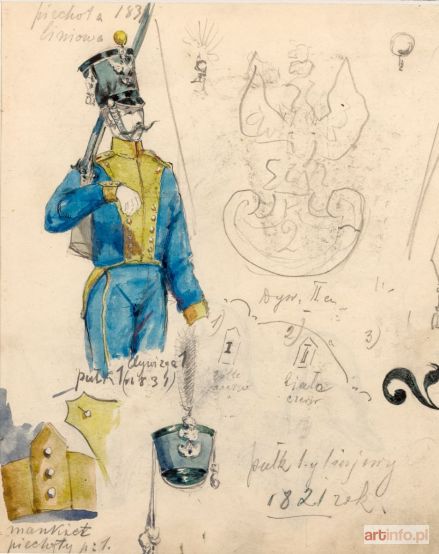 piechota 183
liniowa
2
Dyw. II
1)
2)
3)
I
II
Dywizya 1
pułk 1 (1831)
pułk 1-y linjowy
1821 rok
mankiet
piechoty p. 1.
artinfo.pl